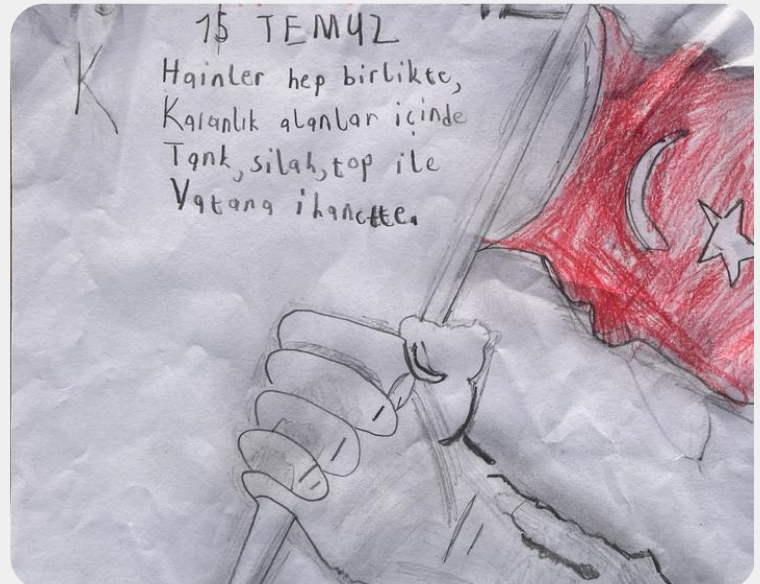 15 TEMUZ
Hainler hep birlikte,
Karanlık alanlar içinde
Tank, silah, top ile
Vatana ihanette.